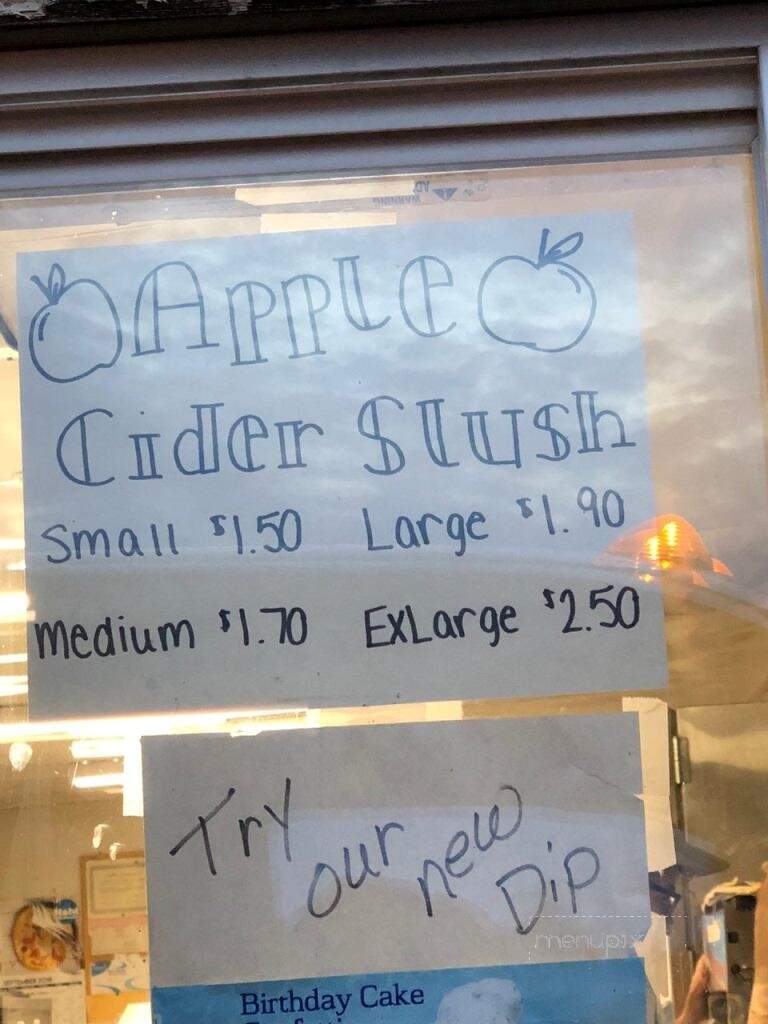 Apple
Cider Slush
Small $1.50 Large $1.90
Medium $1.70 ExLarge $2.50
Try our new Dip
menupix
Birthday Cake
SEPTEMBER